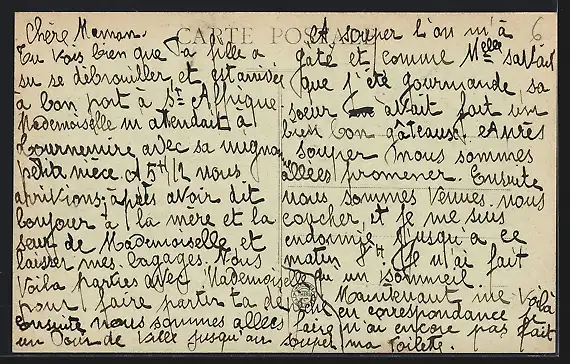 CARTE POSTALE
6
Chère Maman.
Tu vois bien que ta fille a
su se débrouiller et est arrivée
à bon port à St Affrique
Mademoiselle m'attendait à
Tournemire avec sa mignonne
petite nièce. à 5h 1/2 nous
arrivions; après avoir dit
bonjour à la mère et la
sœur de Mademoiselle et
laisser mes bagages. Nous
voilà parties avec Mademoiselle
pour faire partir ta dé
Ensuite nous sommes allées faire
un Tour de Ville jusqu'au souper
Et souper l'on m'a
gâté et comme Melle savait
que j'été gourmande, sa
sœur avait fait un
bien bon gâteaux. Après
souper nous sommes
allées promener. Ensuite
nous sommes venues nous
coucher, et je me suis
endormie jusqu'à ce
matin 8h. Je n'ai fait
qu'un sommeil.
Maintenant me voilà
en correspondance je
n'ai encore pas fait
ma toilette.